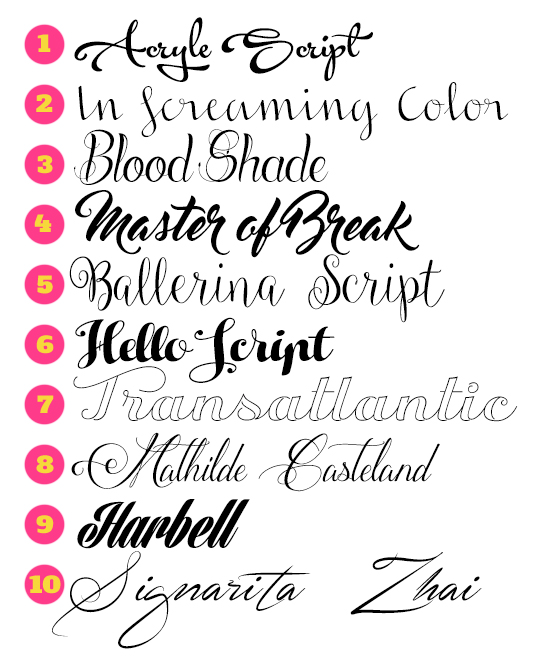 1 Acryle Script
2 In Screaming Color
3 Blood Shade
4 Master of Break
5 Ballerina Script
6 Hello Script
7 Transatlantic
8 Mathilde Casteland
9 Harbell
10 Signarita Zhai